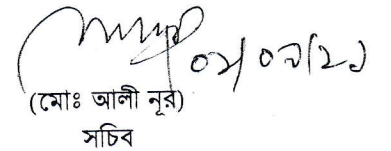 ০২/০৯/২১
(মোঃ আলী নূর)
সচিব